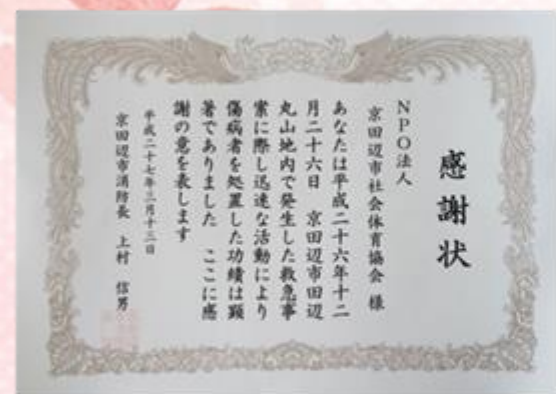 感謝状
NPO法人
京田辺市社会体育協会 様
あなたは平成二十六年十二
月二十六日 京田辺市田辺
丸山地内で発生した救急事
案に際し迅速な活動により
傷病者を処置した功績は顕
著でありました ここに感
謝の意を表します
平成二十七年三月十三日
京田辺市消防長 上村 信男